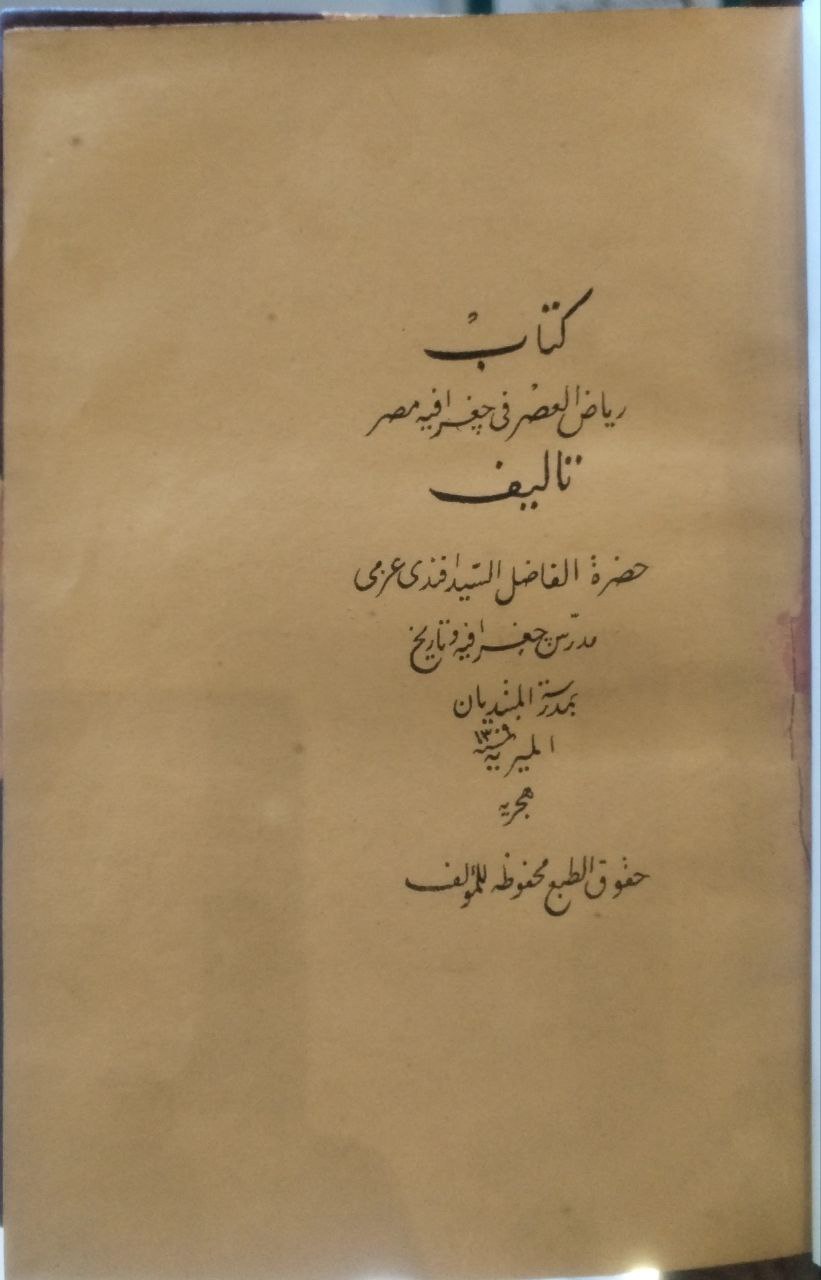 كتاب
رياض العصر فى جغرافيه مصر
تاليف
حضرة الفاضل السيد افندى عزمى
مدرّس جغرافيه وتاريخ
بمدرسة المبتديان
الميريه سنة
هجريه
حقوق الطبع محفوظه للمؤلف